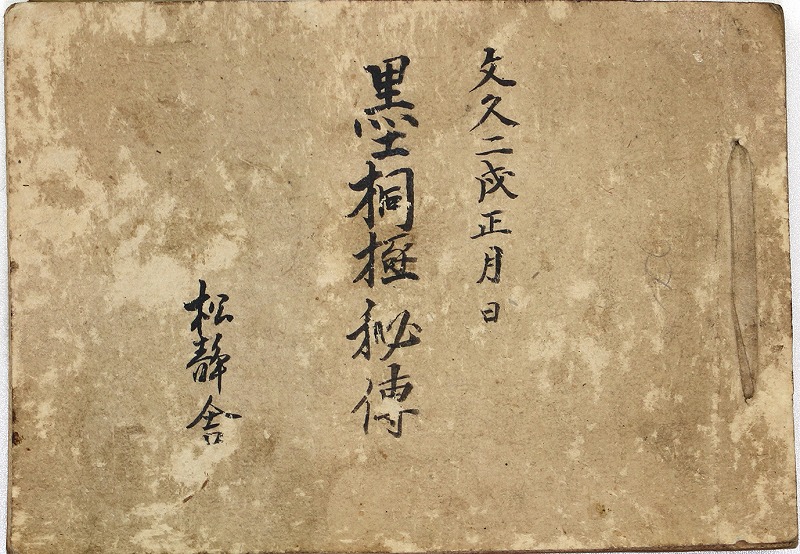 文久二戌正月日
墨桐極秘傳
松静舎